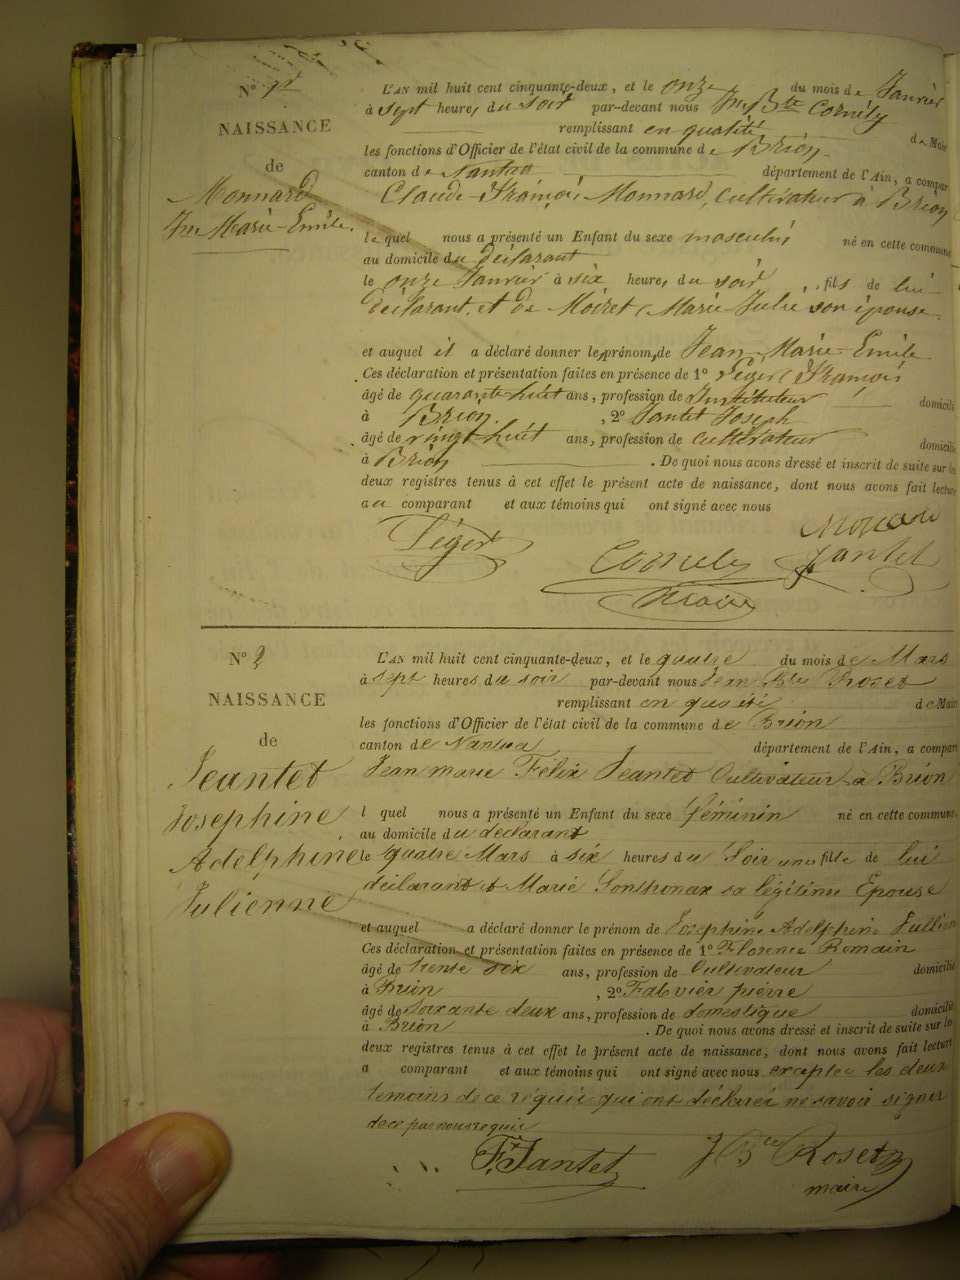 N° 1er
NAISSANCE
de
Monnard
Jn Marie-Emile.
L'AN mil huit cent cinquante-deux, et le onze du mois de Janvier
à sept heures du soir par-devant nous Jn Bte Cornély
remplissant en qualité de Maire
les fonctions d'Officier de l'état civil de la commune de Brion
canton de Nantua département de l'Ain, a compar
Claude-François Monnard, cultivateur à Brion
lequel nous a présenté un Enfant du sexe masculin né en cette commune
au domicile du déclarant
le onze Janvier à six heures du soir, fils de lui
déclarant, et de Moiret Marie Julie son épouse
et auquel il a déclaré donner les prénoms de Jean-Marie-Emile
Ces déclaration et présentation faites en présence de 1° Léger François
âgé de quarante-huit ans, profession de Instituteur domicilié
à Brion, 2° Jantet Joseph
âgé de vingt-huit ans, profession de cultivateur domicilié
à Brion. De quoi nous avons dressé et inscrit de suite sur les
deux registres tenus à cet effet le présent acte de naissance, dont nous avons fait lecture
au comparant et aux témoins qui ont signé avec nous
Léger Cornély Monard
Jantet
Maire
N° 2
NAISSANCE
de
Jeantet
Josephine
Adelphine
Julienne
L'AN mil huit cent cinquante-deux, et le quatre du mois de Mars
à sept heures du soir par-devant nous Jean Bte Rozet
remplissant en qualité de Maire
les fonctions d'Officier de l'état civil de la commune de Brion
canton de Nantua département de l'Ain, a compar
Jean marie Félix Jeantet Cultivateur a Brion
l quel nous a présenté un Enfant du sexe féminin né en cette commune
au domicile du declarant
le quatre Mars à six heures du Soir une fille de lui
déclarant et Marie Sonthonax sa légitime Epouse
et auquel a déclaré donner le prénom de Josephine Adelphine Jullien
Ces déclaration et présentation faites en présence de 1° Florence Romain
âgé de trente six ans, profession de Cultivateur domicilié
à Brion, 2° Falvier pierre
âgé de soixante deux ans, profession de domestique domicilié
à Brion. De quoi nous avons dressé et inscrit de suite sur les
deux registres tenus à cet effet le présent acte de naissance, dont nous avons fait lecture
a comparant et aux témoins qui ont signé avec nous excepter les deux
temoins de ce réquis qui ont déclarés ne savoir signer
de ce par nous requis
F. Jantet J Bte Rosetz
maire